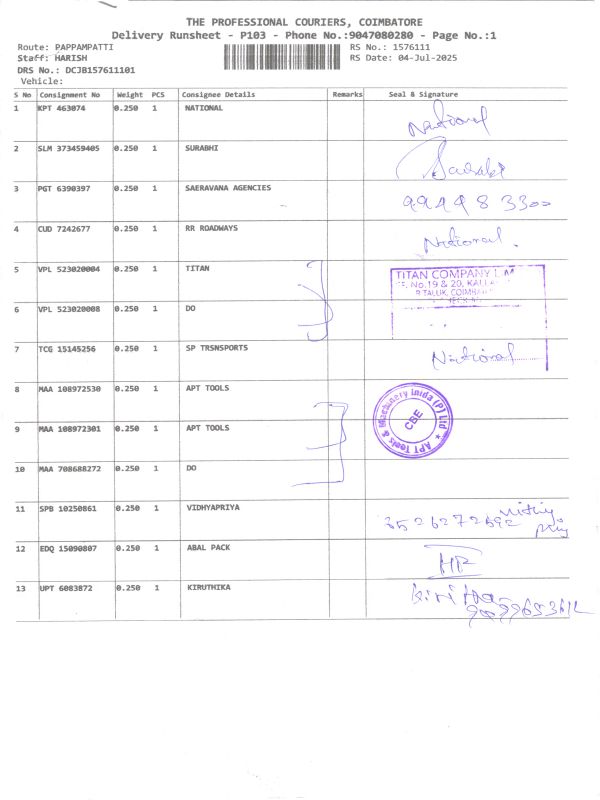 THE PROFESSIONAL COURIERS, COIMBATORE
Delivery Runsheet - P103 - Phone No.:9047080280 - Page No.:1
Route: PAPPAMPATTI RS No.: 1576111
Staff: HARISH RS Date: 04-Jul-2025
DRS No.: DCJB157611101
Vehicle:
S No Consignment No Weight PCS Consignee Details Remarks Seal & Signature
1 KPT 463074 0.250 1 NATIONAL National
2 SLM 373459405 0.250 1 SURABHI
3 PGT 6390397 0.250 1 SAERAVANA AGENCIES 99448 3300
4 CUD 7242677 0.250 1 RR ROADWAYS National.
5 VPL 523020004 0.250 1 TITAN TITAN COMPANY
No.19 & 20,
TALUK,
6 VPL 523020008 0.250 1 DO
7 TCG 15145256 0.250 1 SP TRSNSPORTS National
8 MAA 108972530 0.250 1 APT TOOLS
9 MAA 108972301 0.250 1 APT TOOLS APT Tools & Machinery Inida (P) Ltd CBE
10 MAA 708688272 0.250 1 DO
11 SPB 10250861 0.250 1 VIDHYAPRIYA
12 EDQ 15090807 0.250 1 ABAL PACK HP
13 UPT 6083872 0.250 1 KIRUTHIKA